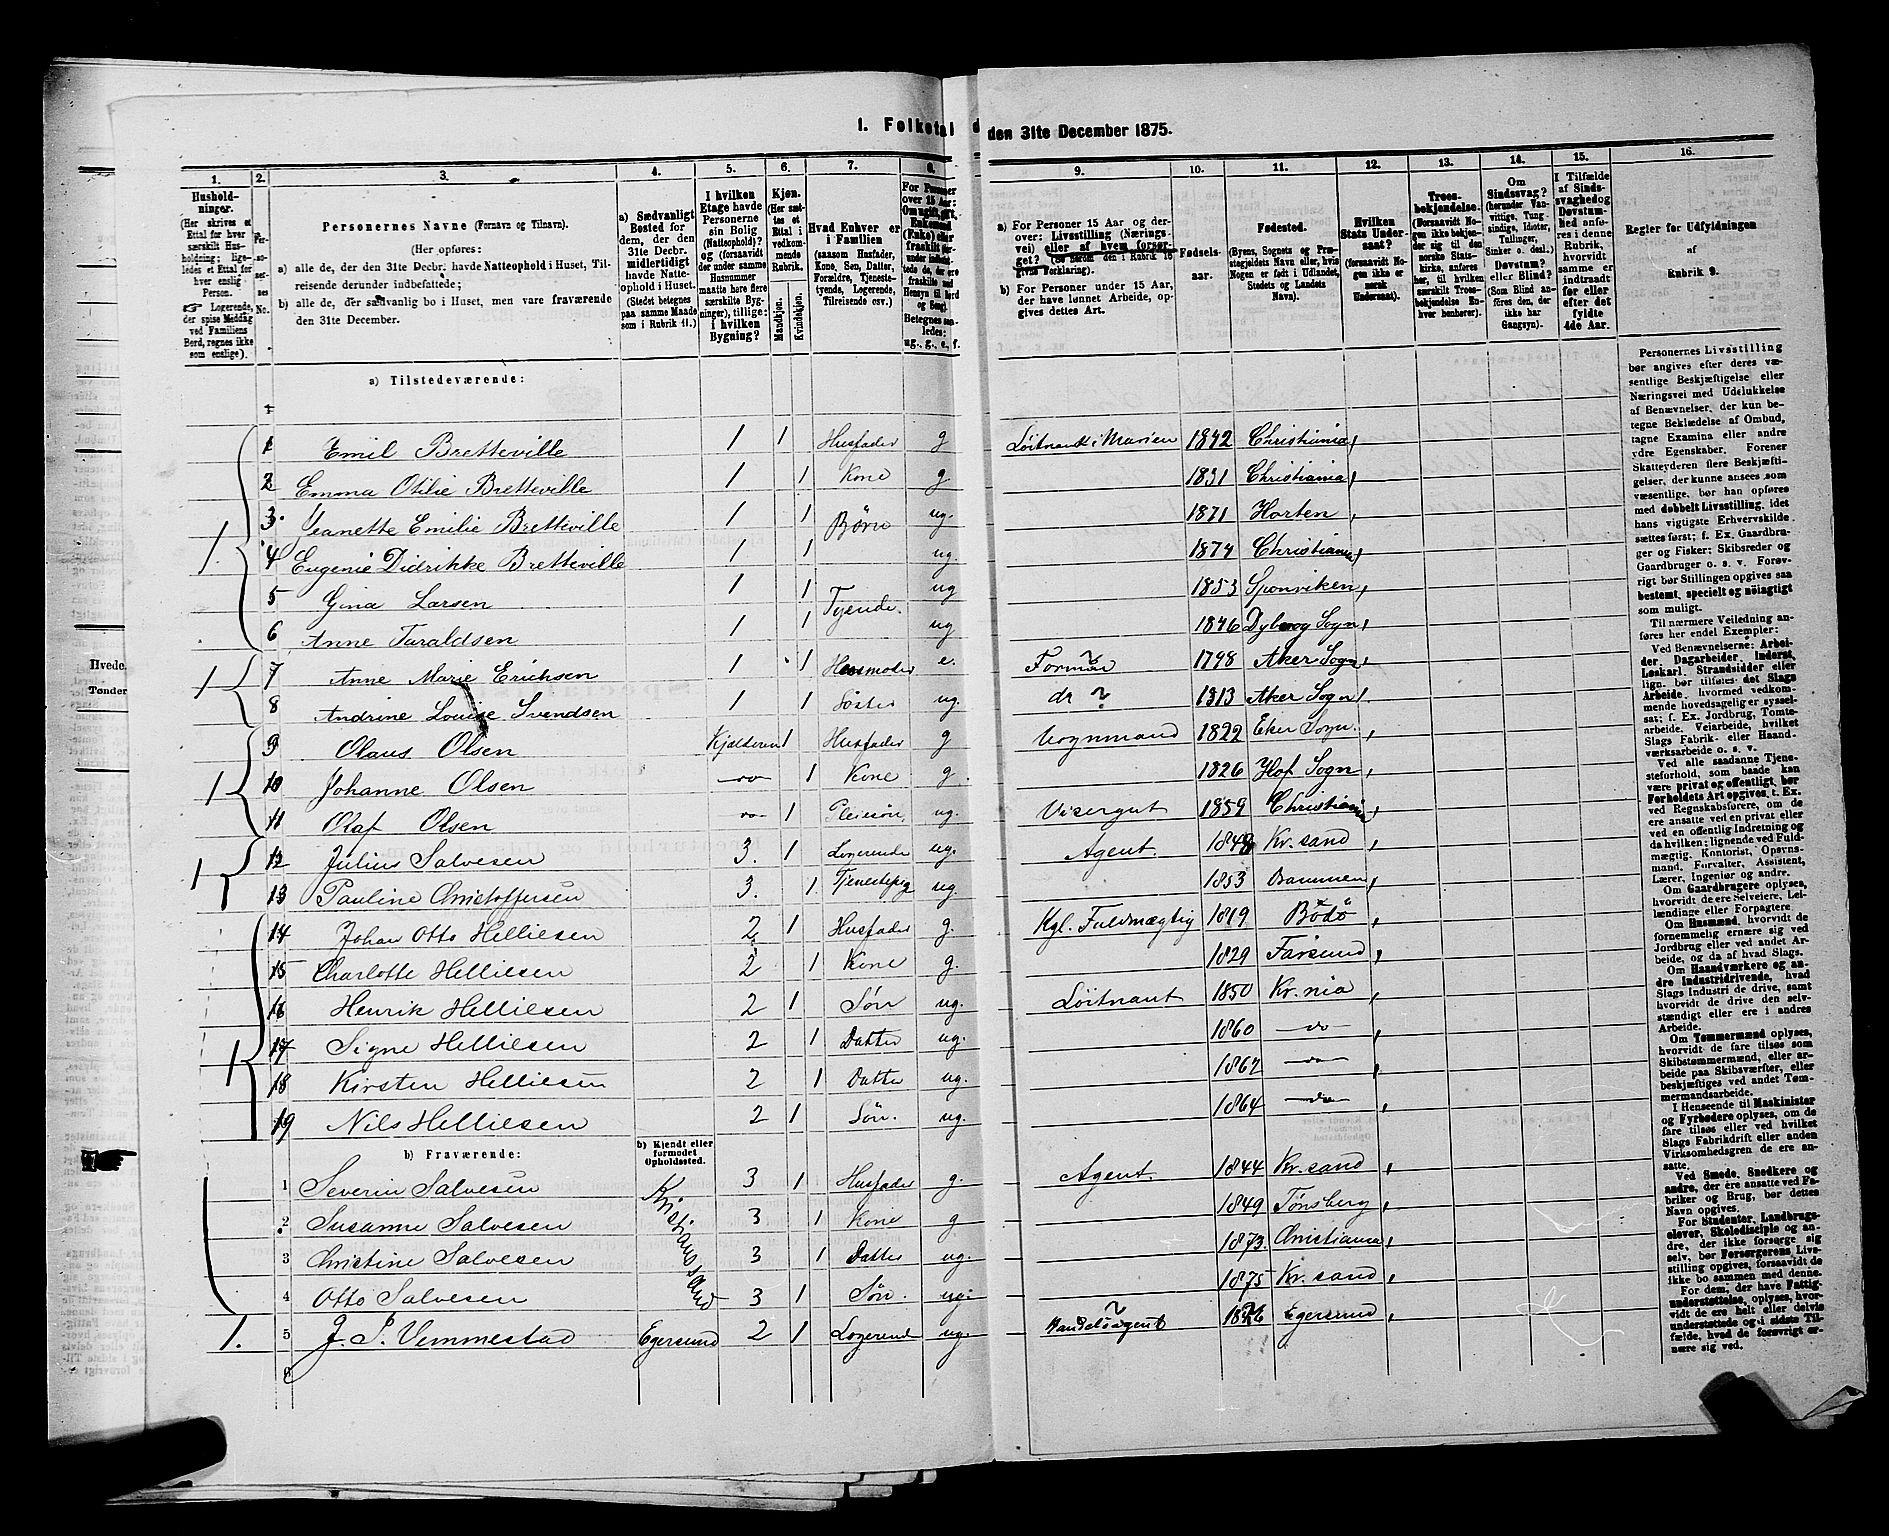 1. Folketal den 31te December 1875.
1. 2. 3. 4. 5. 6. 7. 8. 9. 10. 11. 12. 13. 14. 15. 16.
Husholdninger.
(Her skrives et
Ettal for hver
særskilt Husholdning;
ligeledes et Ettal for
hver enslig
Person.
Logerende,
der spise Middag
ved Familiens
Bord, regnes ikke
som enslige).
Personernes No.
Personernes Navne (Fornavn og Tilnavn).
(Her opføres:
a) alle de, der den 31te Decbr. havde Natteophold i Huset, Tilreisende derunder indbefattede;
b) alle de, der sædvanlig bo i Huset, men vare fraværende
den 31te December.
a) Sædvanligt
Bosted for
dem, der den
31te Decbr.
midlertidigt
havde Natteophold i Huset.
(Stedet betegnes
paa samme Maade
som i Rubrik 11.)
I hvilken
Etage havde
Personerne
sin Bolig
(Natteophold)?
og (forsaavidt
der under samme
Husnummer
maatte høre flere
særskilte Bygninger), tillige:
i hvilken
Bygning?
Kjøn.
(Her sættes et
Ettal i
vedkommende
Rubrik.
Mandkjøn.
Kvindkjøn.
Hvad Enhver er
i Familien
(saasom Husfader,
Kone, Søn, Datter,
Forældre, Tjenestetyende, Logerende,
Tilreisende osv.)
For Personer
over 15 Aar:
Om ugift, gift,
Enkemand
(Enke) eller
fraskilt
Betegnes saaledes:
ug., g., e., f.
a) For Personer 15 Aar og derover: Livsstilling (Næringsvei) eller af hvem forsørget?
(Se herom den i Rubrik 16
givne Forklaring).
b) For Personer under 15 Aar,
der have lønnet Arbeide, opgives dettes Art.
Fødselsaar.
Fødested.
(Byens, Sognets og Præstegjeldets Navn eller, hvis
Nogen er født i Udlandet,
Stedets og Landets
Navn).
Hvilken
Stats Undersaat?
(forsaavidt Nogen ikke er
norsk
Undersaat).
Troesbekjendelse.
(Forsaavidt Nogen ikke bekjender sig til den
norske Statskirke, anføres
her, til hvilken
særskilt Troesbekjendelse Enhver henhører).
Om
Sindssvag?
(herunder Vanvittige, Tungsindige, Idioter,
Tullinger,
Sinker o. desl.)
Døvstum?
eller Blind?
(Som Blind anføres den, der
ikke har
Gangsyn).
I Tilfælde
af Sindssvaghed og
Døvstumhed anføres i denne
Rubrik,
hvorvidt
samme er
indtraadt
før eller
efter det
fyldte
4de Aar.
Regler for Udfyldningen
af
Rubrik 9.
a) Tilstedeværende:
1 Emil Bretteville 1 1 Husfader g Løitnant i Marinen 1842 Christiania
2 Emma Otilie Bretteville 1 1 Kone g 1831 Christiania
3 Jeanette Emilie Bretteville 1 1 Børn ug. 1871 Horten
1. 4 Eugenie Didrikke Bretteville 1 1 ug. 1874 Christiania
5 Gina Larsen 1 1 Tyende. ug 1853 Sponviken
6 Anne Taraldsen 1 1 ug 1846 Sogn
1 7 Anne Marie Erichsen 1 1 Husmoder e. ? 1798 Aker Sogn
8 Andrine Louise Svendsen 1 1 Søster ug. do ? 1813 Aker Sogn
9 Olaus Olsen Kjelderen 1 Husfader g Vognmand 1822 Eker Sogn.
1 10 Johanne Olsen do 1 Kone g. 1826 Hof Sogn
11 Olaf Olsen do 1 Pleiesøn, ug. Visergut 1859 Christiania
1 12 Julius Salvesen 3. 1 Logerende ug. Agent. 1848 Kr.sand
13 Pauline Christoffersen 3. 1 Tjenestepig ug. 1853 Drammen
14 Johan Otto Helliesen 2 1 Husfader g. Kgl. Fuldmægtig 1819 Bodö
15 Charlotte Helliesen 2 1 Kone g. 1829 Farsund
16 Henrik Helliesen 2 1 Søn ug. Löitnant 1850 Kr.nia
1 17 Signe Helliesen 2 1 Datter ug. 1860 do
18 Kirsten Helliesen 2 1 Datter ug. 1862 do
19 Nils Helliesen 2 1 Søn. ug. 1864 do
b) Fraværende:
b) Kjendt eller
formodet
Opholdssted.
1 Severin Salvesen Kristianssand 3 1 Husfader g. Agent. 1844 Kr.sand
2 Susanne Salvesen 3 1 Kone g 1849 Tønsberg
3 Christine Salvesen 3 1 Datter ug. 1873. Christiania
4 Otto Salvesen 3 1 Søn. ug. 1875 Kr.sand
1. 5 J. S. Vemmestad Egersund 2 1 Logerende ug. Handelsagent ? 1826 Egersund
6
Personernes Livsstilling
bør angives efter deres væsentlige Beskjæftigelse eller
Næringsvei med Udelukkelse
af Benævnelser, der kun betegne Beklædelse af Ombud,
tagne Examina eller andre
ydre Egenskaber. Forener
Skatteyderen flere Beskjæftigelser, der kunne ansees som
væsentlige, bør han opføres
med dobbelt Livsstilling, idet
hans vigtigste Erhvervskilde
sættes først; f. Ex. Gaardbruger og Fisker; Skibsreder og
Gaardbruger o. s. v. Forøvrigt bør Stillingen opgives saa
bestemt, specielt og nöiagtigt
som muligt.
Til nærmere Veiledning anføres her endel Exempler:
Ved Benævnelserne: Arbeider, Dagarbeider, Inderst,
Løskarl, Strandsidder eller
lign. bør tilføies det Slags
Arbeide, hvormed vedkommende hovedsagelig er sysselsat; f. Ex. Jordbrug, Tomtearbeide, Veiarbeide, hvilket
Slags Fabrik- eller Haandværksarbeide o. s. v.
Ved alle saadanne Tjenesteforhold, som baade kan
være privat og offentligt, bør
Forholdets Art opgives, t. Ex.
ved Regnskabsførere, om de
ere ansatte ved en privat eller
ved en offentlig Indretning og
da hvilken; lignende ved Fuldmægtig, Kontorist, Opsynsmand, Forvalter, Assistent,
Lærer, Ingeniør og andre.
Om Gaardbrugere oplyses,
hvorvidt de ere Selveiere, Leilændinge eller Forpagtere
Om Husmænd, hvorvidt de
fornemmelig ernære sig ved
Jordbrug eller ved andet Arbeide, og da af hvad Slags.
Om Haandværkere og andre Industridrivende, hvad
Slags Industri de drive, samt
hvorvidt de drive den selvstændigt eller ere i andres
Arbeide.
Om Tømmermænd oplyses,
hvorvidt de fare tilsøs som
Skibstømmermænd, eller arbeide paa Skibsværfter, eller
beskjæftiges ved andet Tømmermandsarbeide.
I Henseende til Maskinister
og Fyrbødere oplyses, om de
fare tilsøs eller ved hvilket
Slags Fabrikdrift eller anden
Virksomhedsgren de ere ansatte.
Ved Smede, Snedkere og
andre, der ere ansatte ved Fabriker og Brug, bør dettes
Navn opgives.
For Studenter, Landbrugselever, Skoledisciple og andre, der ikke forsørge sig
selv, bør Forsørgerens Livsstilling opgives, forsaavidt de
ikke bo sammen med denne.
For dem, der have Fattigunderstøttelse, oplyses, hvorvidt de ere helt eller delvis
understøttede og i sidste Tilfælde, hvad de forøvrigt ernære sig ved.
Hvede.
Tønder